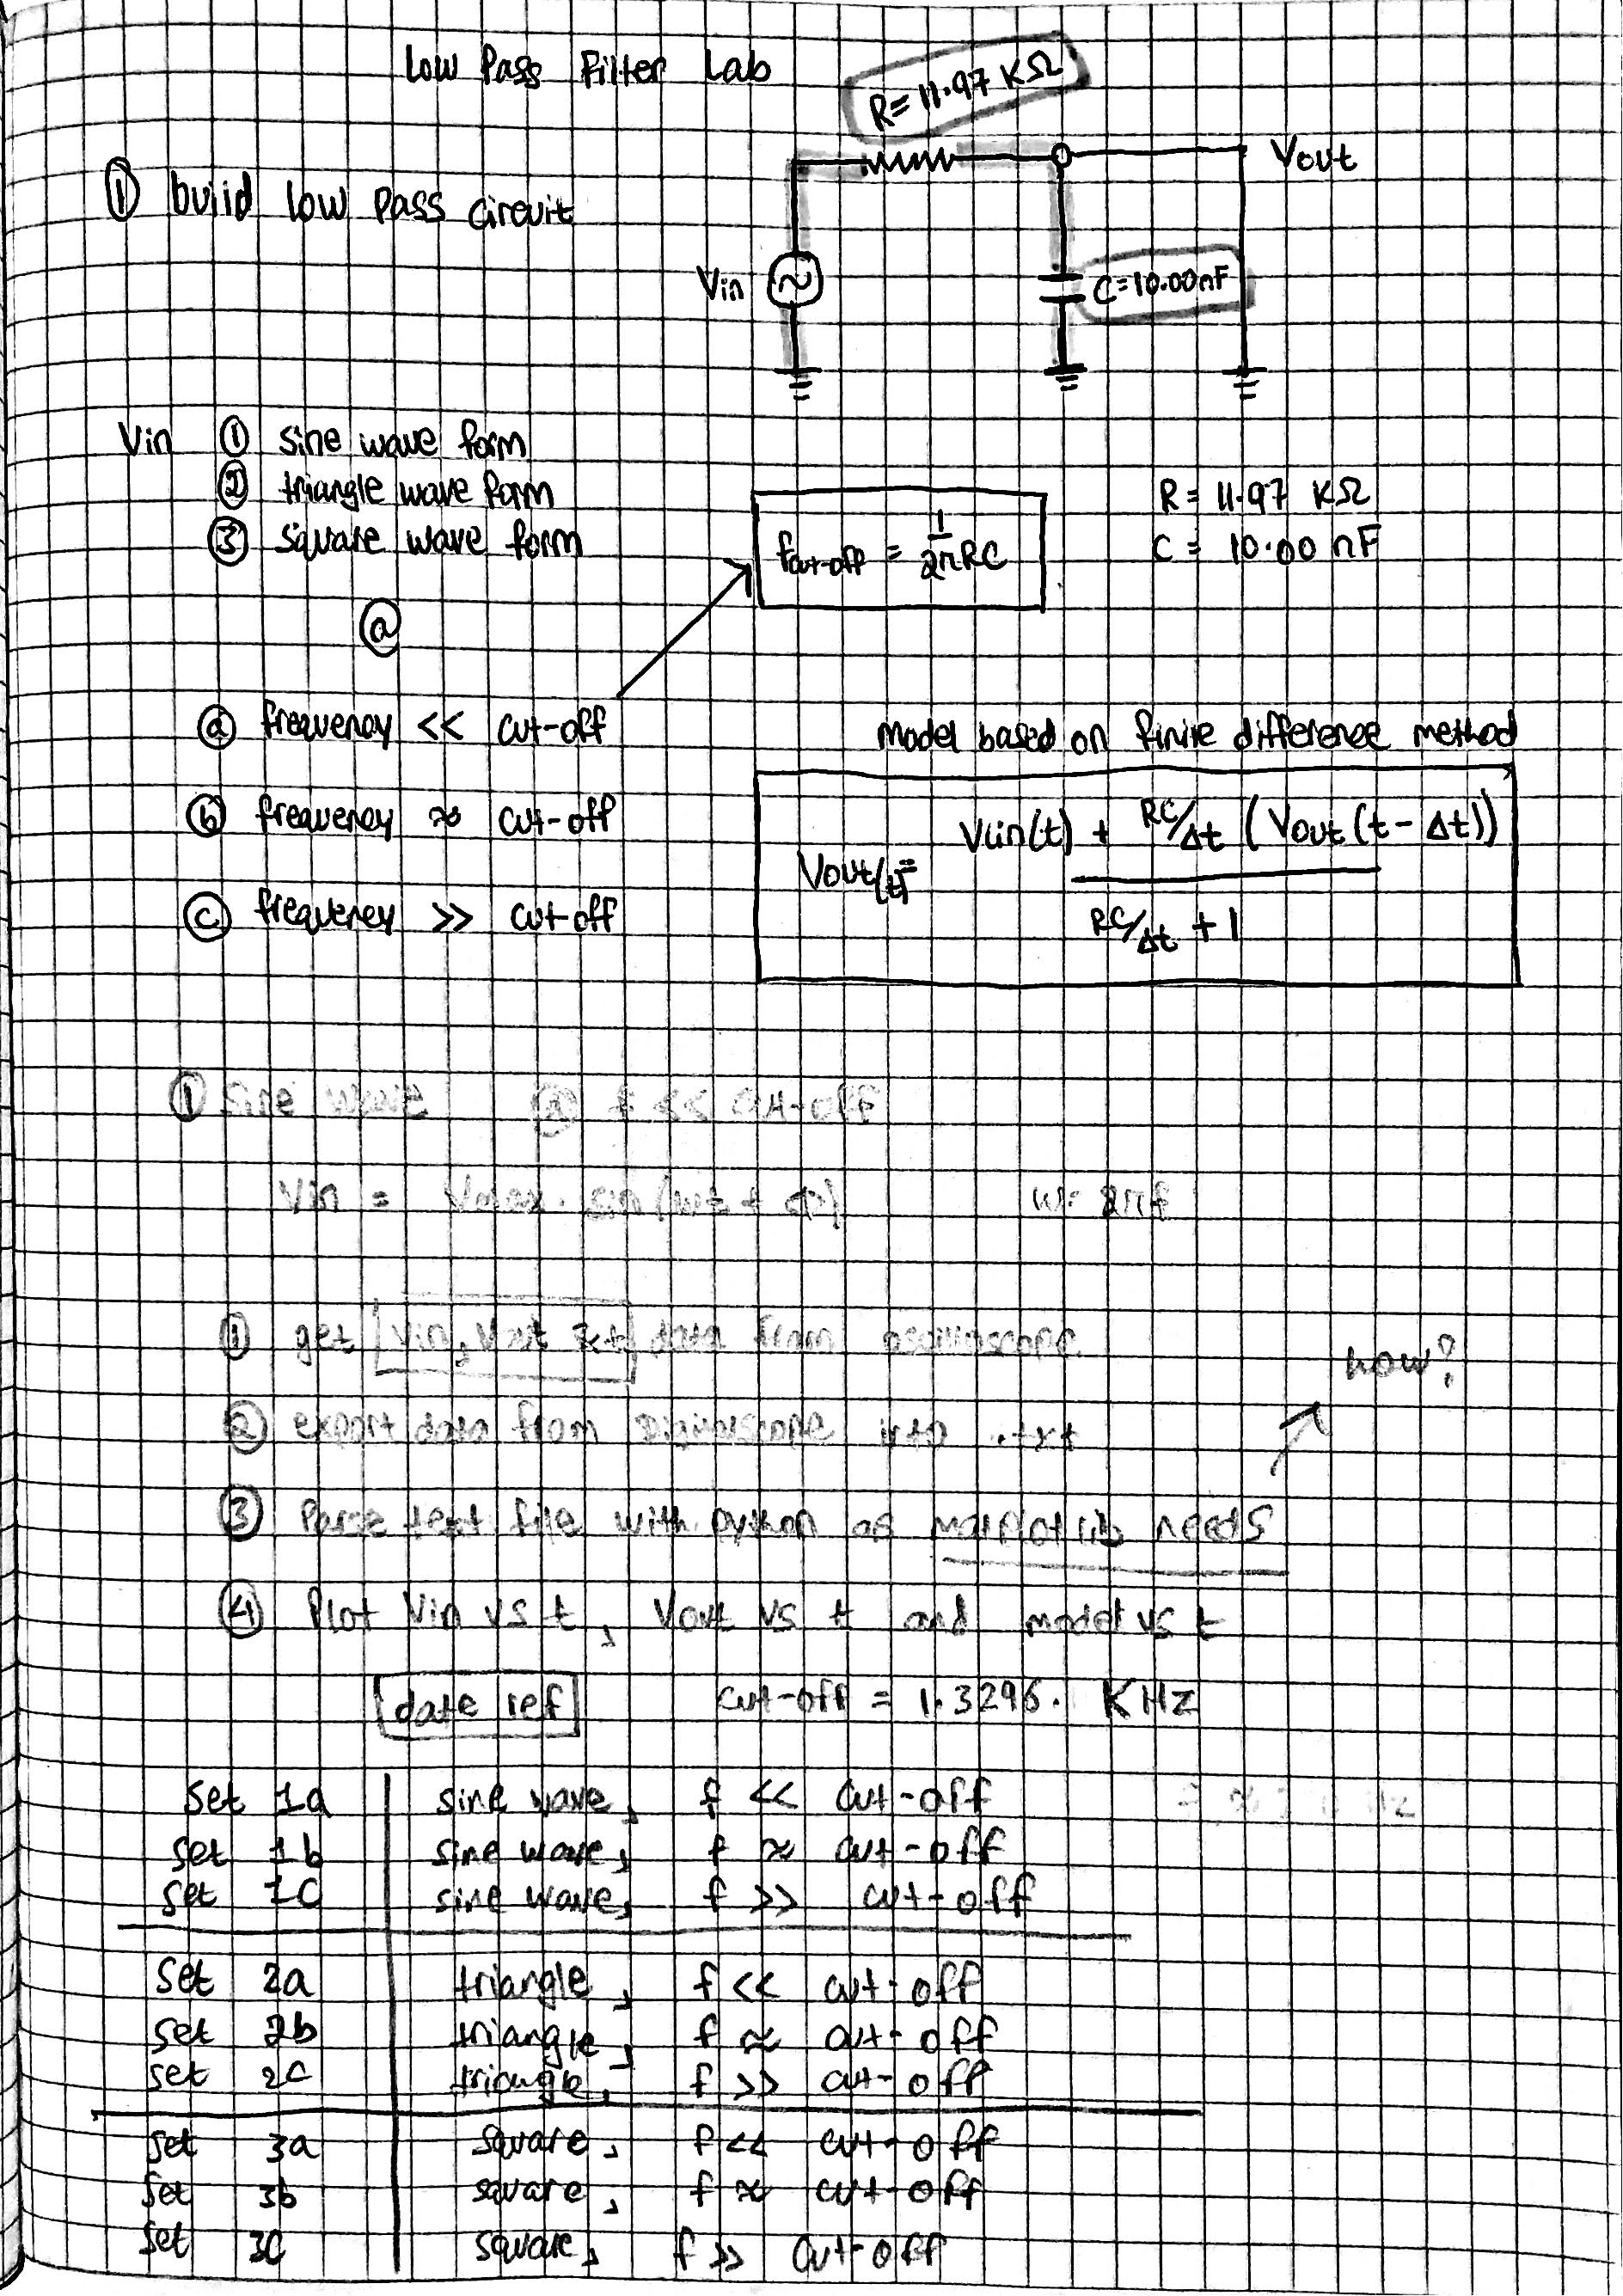 Low Pass Filter Lab
R = 11.97 KΩ
① build low pass circuit
Vout
Vin
C=10.00nF
Vin ① sine wave form
② triangle wave form
③ square wave form
R = 11.97 KΩ
C = 10.00 nF
fcut-off = 1/2πRC
ⓐ
ⓐ frequency << cut-off
ⓑ frequency ≈ cut-off
ⓒ frequency >> cut-off
model based on finite difference method
Vout(t) = Vin(t) + RC/Δt (Vout (t - Δt))
RC/Δt + 1
① sine wave ⓐ f << cut-off
Vin = Vmax . sin (wt + φ) w = 2πf
① get Vin, Vout & t data from oscilloscope
how?
② export data from oscilloscope into .txt
③ Parse text file with python as matplotlib needs
④ Plot Vin vs t, Vout vs t and model vs t
date ref cut-off = 1.3296. KHz
set 1a sine wave, f << cut-off
set 1b sine wave, f ≈ cut-off
set 1c sine wave, f >> cut-off
set 2a triangle, f << cut-off
set 2b triangle, f ≈ cut-off
set 2c triangle, f >> cut-off
set 3a square, f << cut-off
set 3b square, f ≈ cut-off
set 3c square, f >> cut-off